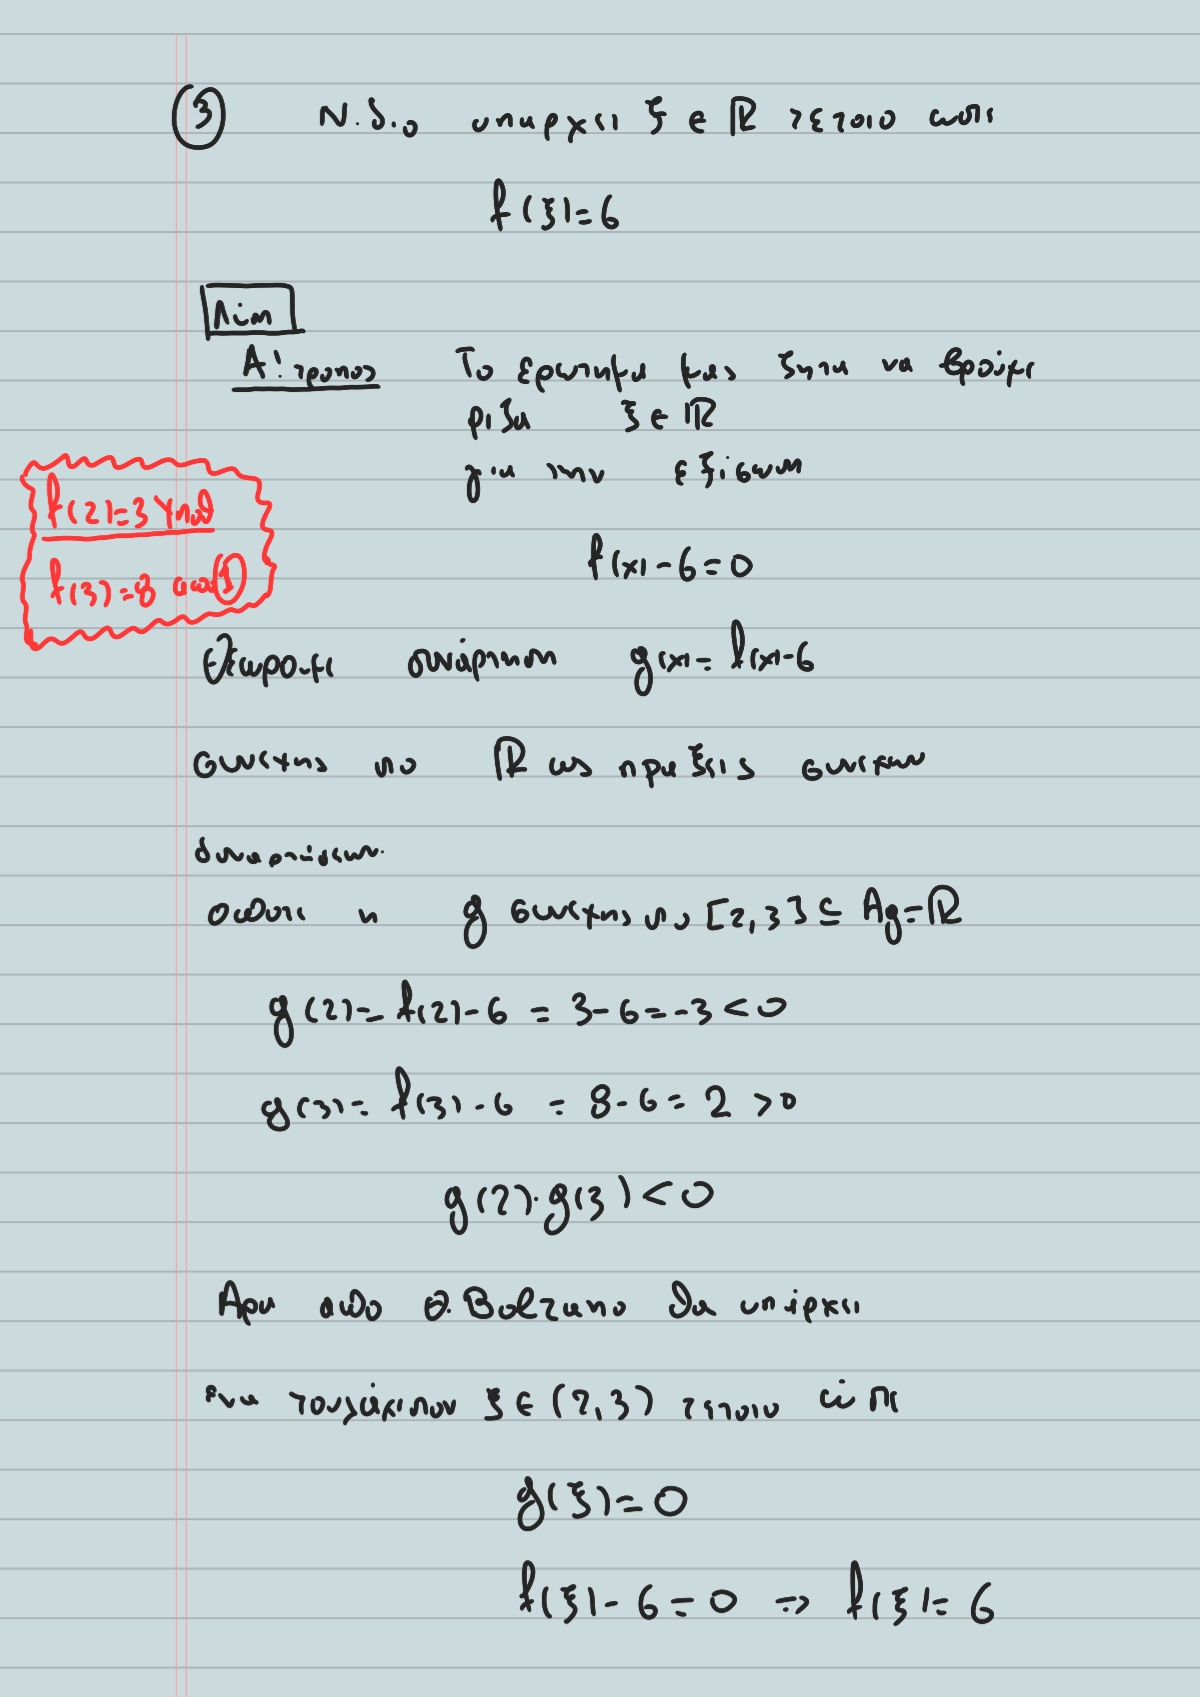 ③ Ν.δ.ο υπαρχει ξ ∈ ℝ τετοιο ωστε
f(ξ)=6
Λύση
Α! τροπος Το ερωτημα μας ζητα να βρούμε
ριζα ξ ∈ ℝ
για την εξίσωση
f(2)=3 Υποθ
f(x)-6=0
f(3)=8 απο ①
Θεωρουμε συνάρτηση g(x)=f(x)-6
συνεχης στο ℝ ως πραξεις συνεχων
συναρτήσεων.
οποτε η g συνεχης στο [2,3] ⊆ Ag=ℝ
g(2)=f(2)-6 = 3-6=-3<0
g(3)=f(3)-6 = 8-6=2>0
g(2)·g(3)<0
Αρα απο Θ.Bolzano θα υπάρχει
ενα τουλάχιστον ξ ∈ (2,3) τετοιο ώστε
g(ξ)=0
f(ξ)-6=0 => f(ξ)=6